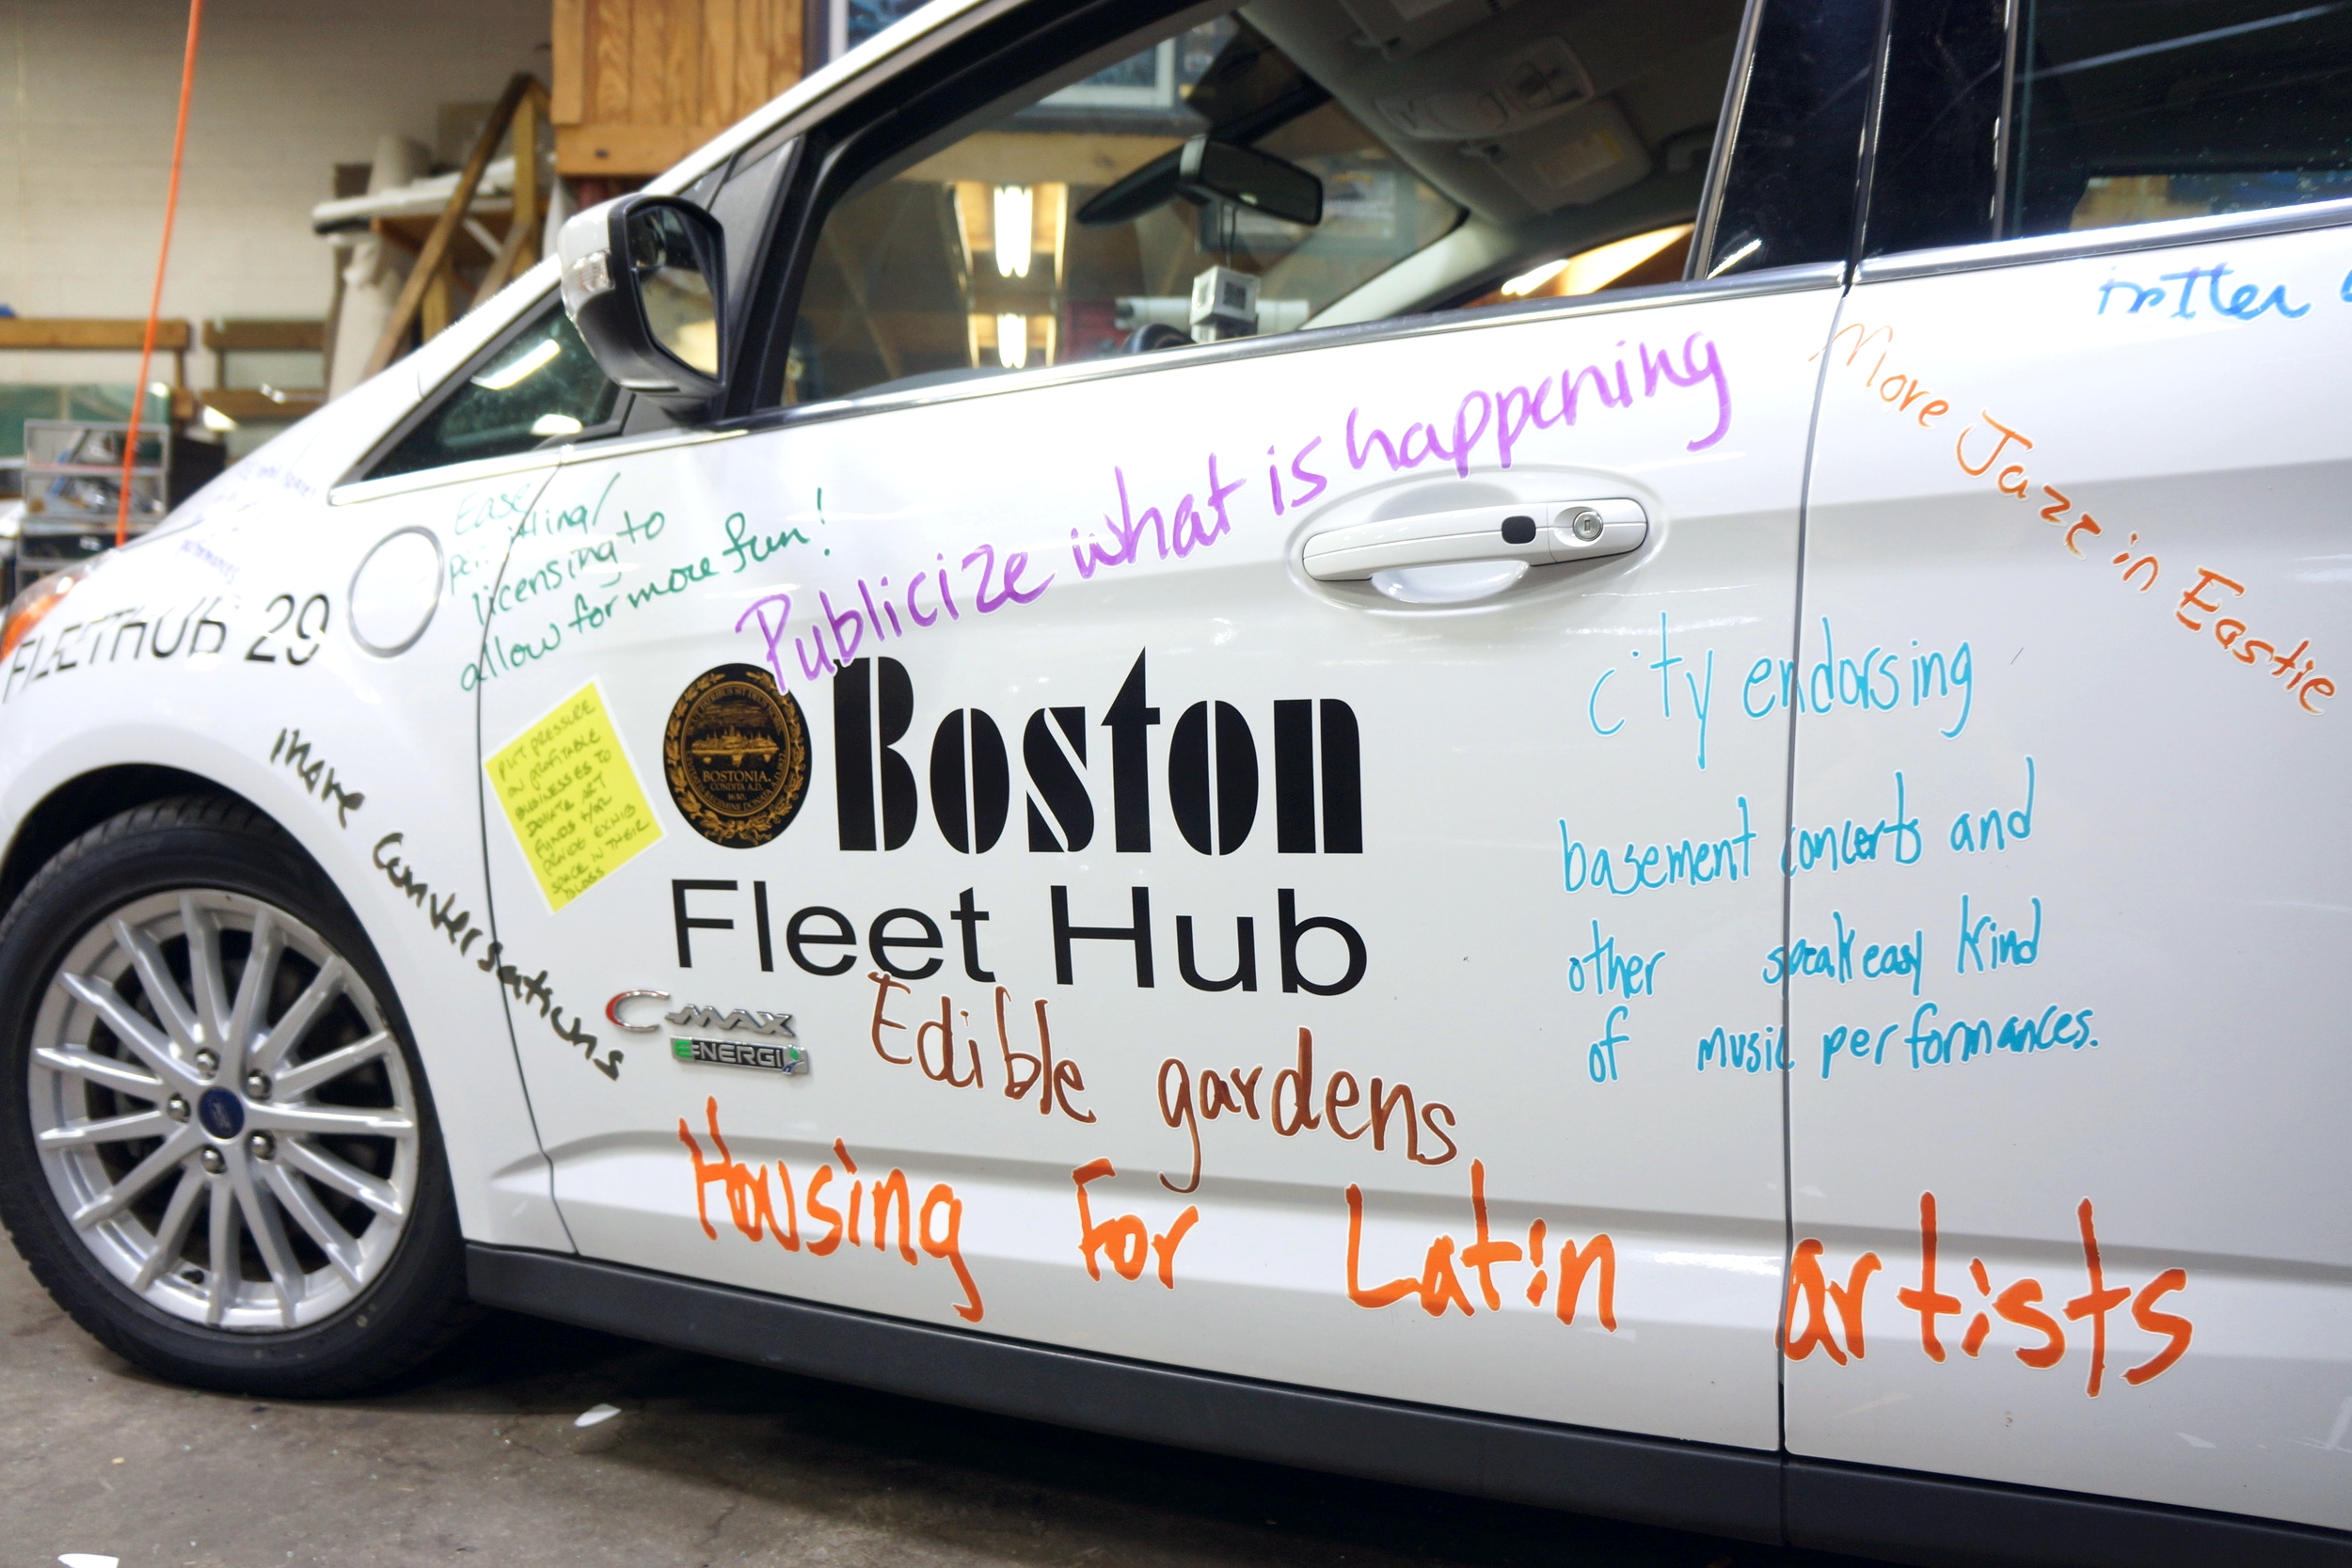 better
More Jazz in Eastie
Publicize what is happening
Ease
permitting/
licensing to
allow for more fun!
FLEETHUB 29
PUT PRESSURE
ON PROFITABLE
BUSINESSES TO
DONATE ART
FUNDS &/OR
EXHIB
SPACE IN THEIR
BLDGS
more conversations
BOSTONIA.
CONDITA A.D.
1630.
Boston
Fleet Hub
C-MAX
ENERGI
city endorsing
basement concerts and
other speakeasy kind
of music performances.
Edible gardens
Housing For Latin artists